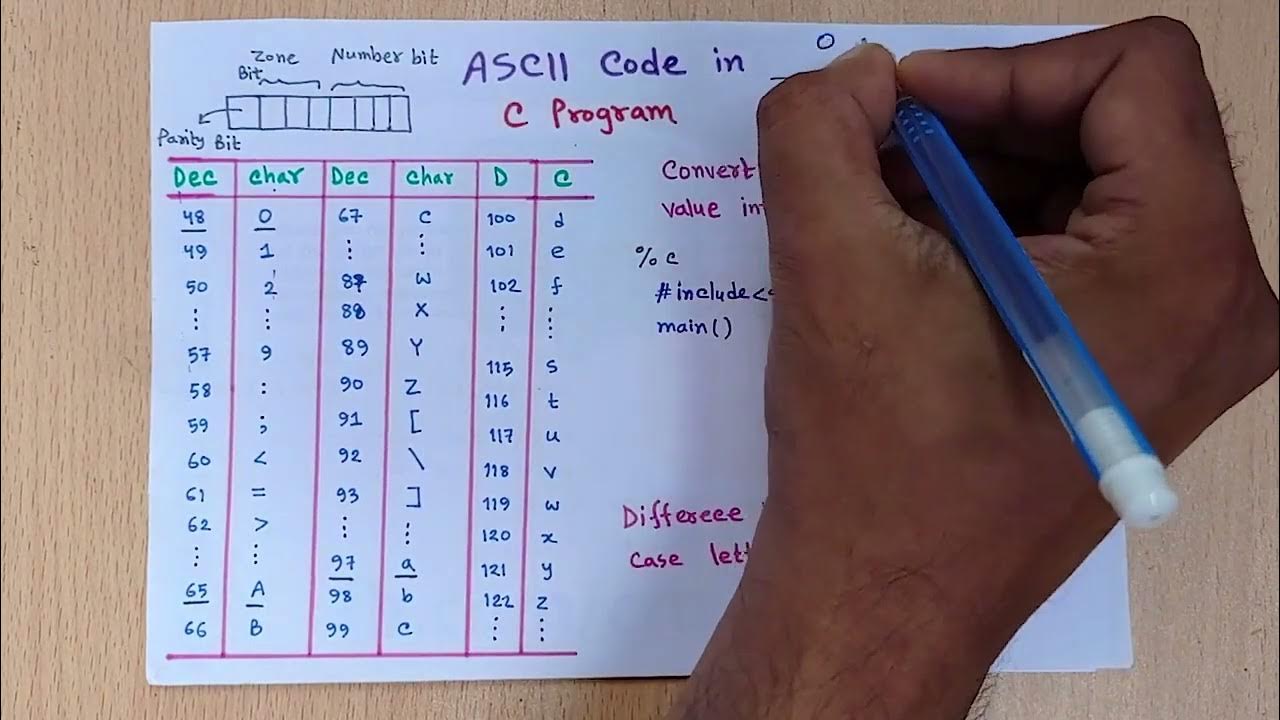 Zone Bit
Number bit
Parity Bit
ASCII Code in
C Program
0
Dec Char Dec Char D C
48 0 67 C 100 d
49 1 ⋮ ⋮ 101 e
50 2 87 W 102 f
⋮ ⋮ 88 X ⋮ ⋮
57 9 89 Y 115 s
58 : 90 Z 116 t
59 ; 91 [ 117 u
60 < 92 \ 118 v
61 = 93 ] 119 w
62 > ⋮ ⋮ 120 x
⋮ ⋮ 97 a 121 y
65 A 98 b 122 z
66 B 99 c ⋮ ⋮
Convert
value
%c
#include<
main()
Differece
case